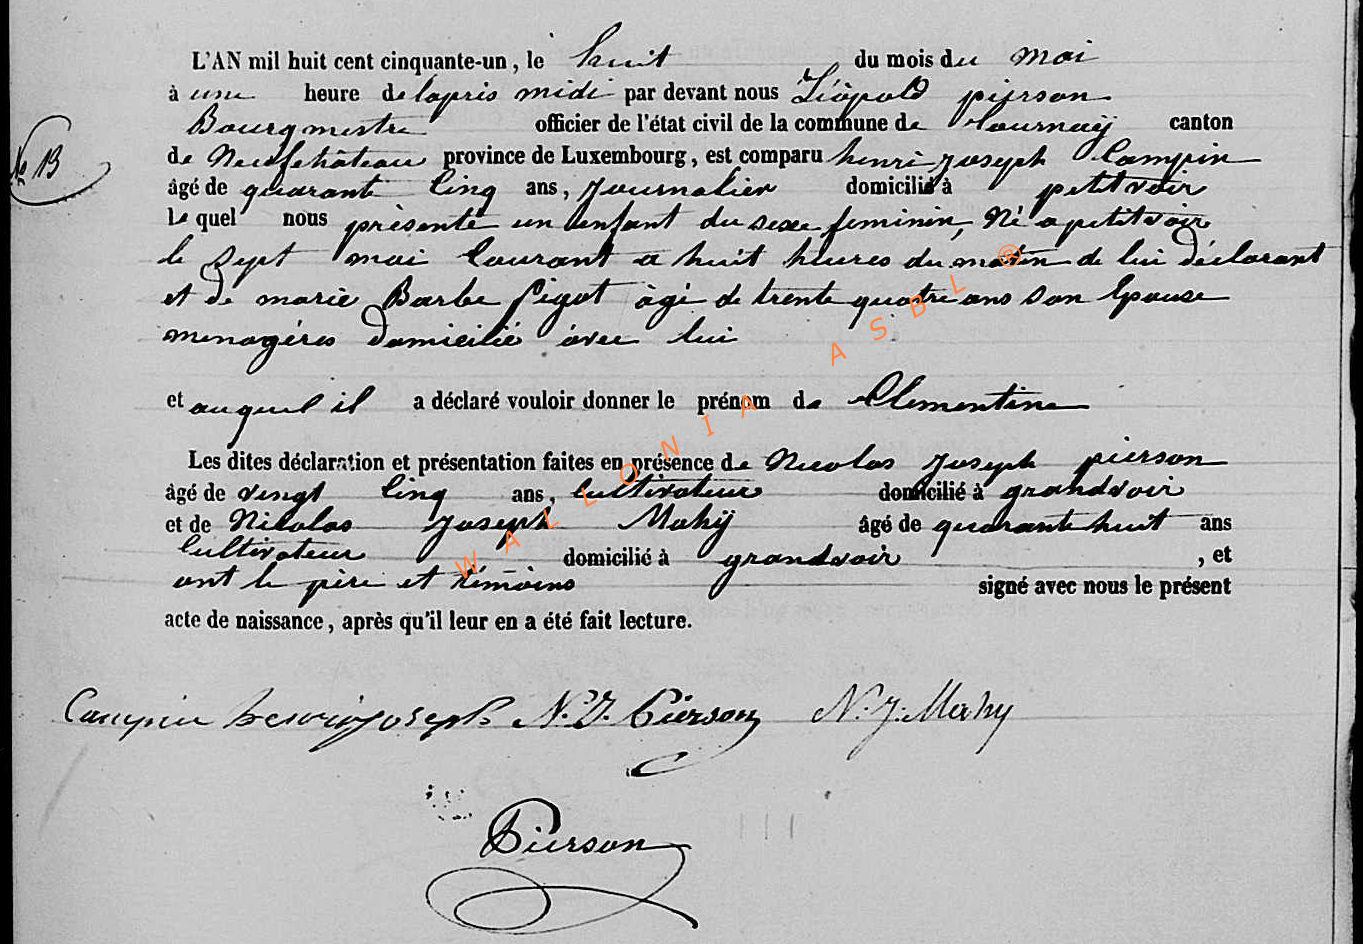 L'AN mil huit cent cinquante-un, le huit du mois du mai
à une heure de lapris midi par devant nous Léopold pierson
Bourgmestre officier de l'état civil de la commune de Tournaÿ canton
No 13
de Neufchâteau province de Luxembourg, est comparu henri joseph Campin
âgé de quarante Cinq ans, Journalier domicilié à petitvoir
Le quel nous présente un enfant du sexe feminin, Né a petitvoir
le sept mai Courant a huit heures du matin de lui déclarant
et de marie Barbe Pigot âgé de trente quatre ans Son Epouse
menagères domicilié avec lui
et auquel il a déclaré vouloir donner le prénom de Clementine
Les dites déclaration et présentation faites en présence de Nicolas Joseph pierson
âgé de vingt Cinq ans, Cultivateur domicilié à grandvoir
et de Nicolas Joseph Mahÿ âgé de quarante huit ans
Cultivateur domicilié à grandvoir , et
ont le père et témoins signé avec nous le présent
acte de naissance, après qu'il leur en a été fait lecture.
Campin henri joseph N. J. Pierson N. J. Mahy
Pierson
WALLONIA ASBL ®